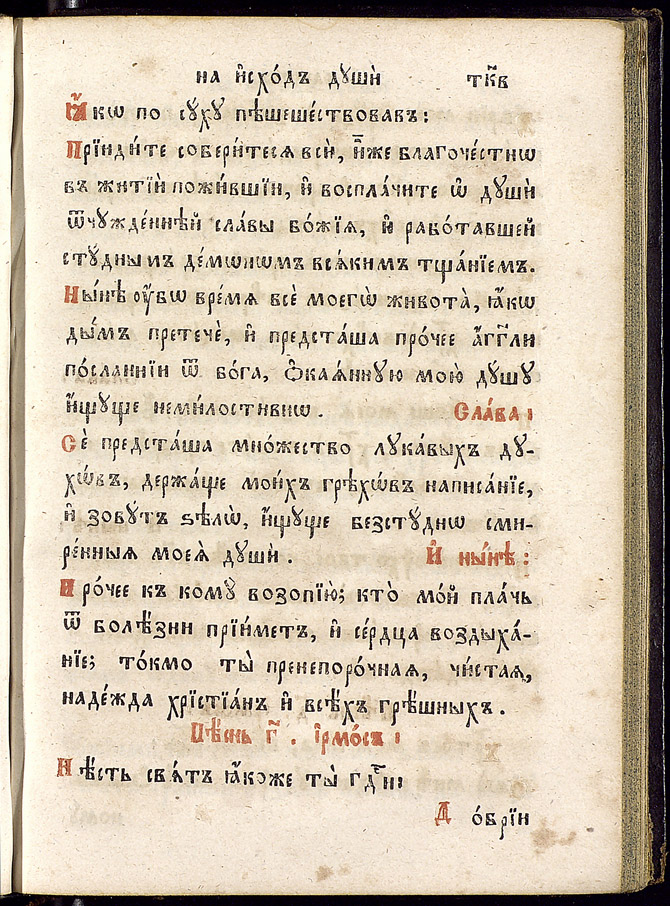 на и҆схо́дъ дꙋшѝ ткв҃
Ꙗ҆́кѡ по сꙋ́хꙋ пѣшеше́ствовавъ:
Прїиди́те собери́теся всѝ, и҆̀же благоче́стнѡ
въ житїѝ пожи́вшїи, и҆ воспла́чите ѡ҆ дꙋшѝ
ѿчꙋжде́ннѣй сла́вы бо́жїѧ, и҆ рабо́тавшей
стꙋ́днымъ де́мѡнѡмъ всѧ́кимъ тща́нїемъ.
Ны́нѣ ᲂу҆́бѡ вре́мѧ всѐ моегѡ̀ живота̀, ꙗ҆́кѡ
ды́мъ претечѐ, и҆ предста́ша про́чее а҆́гг҃ли
по́сланнїи ѿ бо́га, ѻ҆каѧ́ннꙋю мою̀ дꙋ́шꙋ
и҆́щꙋще неми́лостивнѡ. Сла́ва:
Сѐ предста́ша мно́жество лꙋка́выхъ дꙋ-
хѡ́въ, держа́ще мои́хъ грѣхѡ́въ написа́нїе,
и҆ зовꙋ́тъ ѕѣлѡ̀, и҆́щꙋще безстꙋ́днѡ сми-
ре́нныѧ моеѧ̀ дꙋшѝ. И҆ ны́нѣ:
Прочее къ комꙋ̀ возопїю̀; кто̀ мо́й пла́чь
ѿ болѣ́зни прїи́метъ, и҆ се́рдца воздыха́-
нїе; то́кмо ты̀ пренепоро́чнаѧ, чи́стаѧ,
наде́жда хрїстїа́нъ и҆ всѣ́хъ грѣ́шныхъ.
Пѣ́снь г҃. і҆рмо́съ:
Нѣ́сть свѧ́тъ ꙗ҆́коже ты̀ гдⷭ҇и:
До́брїи